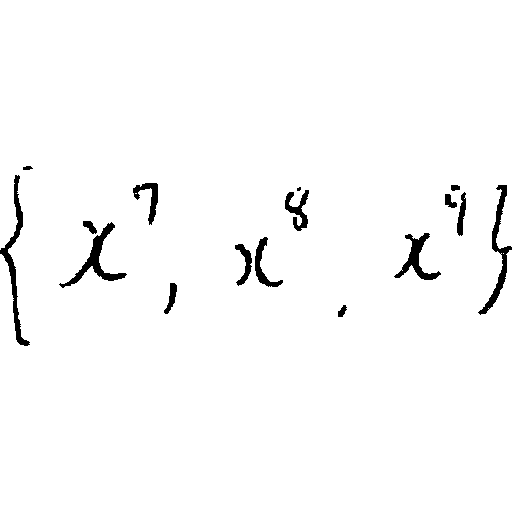 {x⁷, x⁸, x⁹}